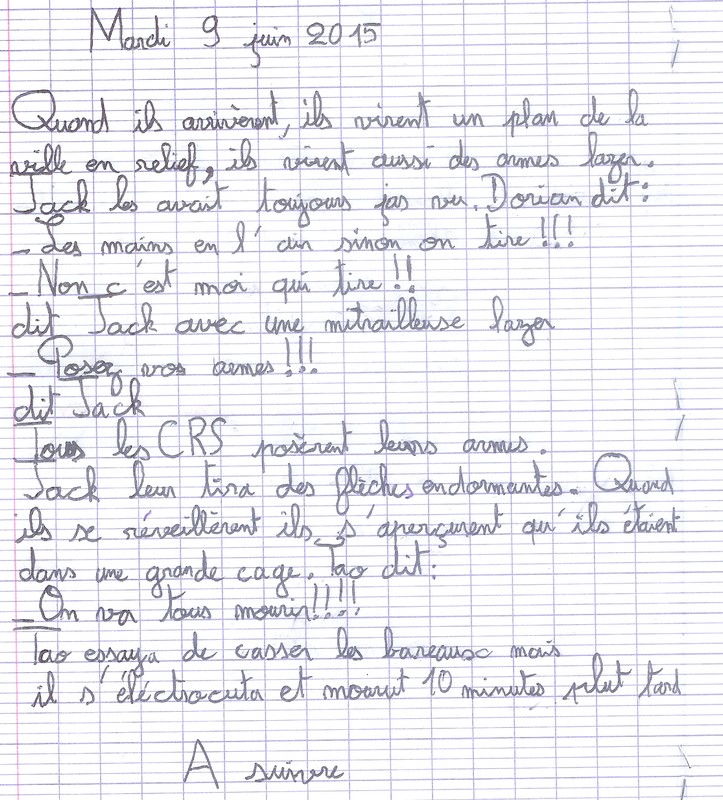 Mardi 9 juin 2015
Quand ils arrivèrent, ils virent un plan de la
ville en relief, ils virent aussi des armes lazer.
Jack les avait toujours pas vu. Dorian dit :
- Les mains en l'air sinon on tire !!!
- Non c'est moi qui tire !!
dit Jack avec une mitrailleuse lazer
- Posez vos armes !!!
dit Jack
Tous les CRS posèrent leurs armes.
Jack leur tira des flèches endormantes. Quand
ils se réveillèrent ils s'aperçurent qu'ils étaient
dans une grande cage. Tao dit :
- On va tous mourir !!!!
Tao essaya de casser les bareaux mais
il s'éléctrocuta et mourut 10 minutes plut tard
A suivre